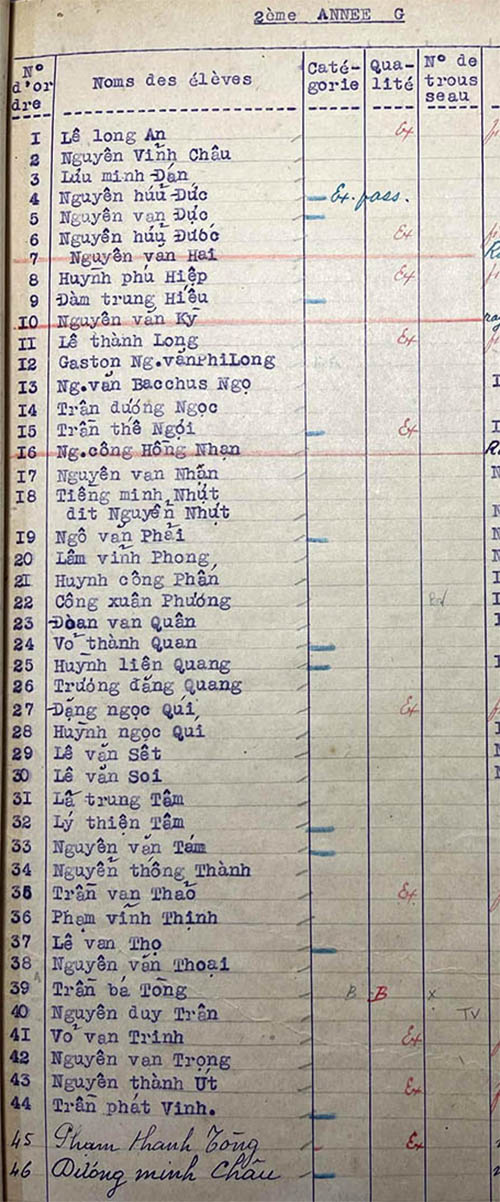 2ème ANNEE G
N° d'or dre Noms des élèves Caté- gorie Qua- lité N° de trous seau
1 Lê long An Ex
2 Nguyên Vĩnh Châu
3 Lưu minh Đán
4 Nguyên hưũ Đức Ex. pass.
5 Nguyên van Đực
6 Nguyên hưũ Đước Ex
7 Nguyên van Hai
8 Huỳnh phú Hiệp Ex
9 Đàm trung Hiếu
10 Nguyên văn Ky
11 Lê thành Long Ex
12 Gaston Ng.vănPhiLong
13 Ng.văn Bacchus Ngọ
14 Trân dương Ngọc
15 Trần thế Ngọi Ex
16 Ng.công Hồng Nhạn
17 Nguyên van Nhẫn
18 Tiêng minh Nhựt
dit Nguyễn Nhựt
19 Ngô văn Phải
20 Lâm vĩnh Phong
21 Huynh công Phấn
22 Công xuân Phương
23 Đoan van Quân
24 Vo thành Quan
25 Huỳnh liên Quang
26 Trương đăng Quang
27 Đặng ngọc Quí Ex
28 Huỳnh ngọc Quí
29 Lê văn Sêt
30 Lê văn Soi
31 Lã trung Tâm
32 Lý thiện Tâm
33 Nguyên văn Tám
34 Nguyễn thông Thành
35 Trần van Thảo Ex
36 Phạm vĩnh Thịnh
37 Lê van Thọ
38 Nguyên văn Thoại
39 Trần bá Tòng B B x
40 Nguyên duy Trân TV
41 Vo van Trinh Ex
42 Nguyên van Trọng
43 Nguyên thành Út Ex
44 Trần phát Vinh.
45 Phạm thanh Tòng Ex
46 Dương minh Châu